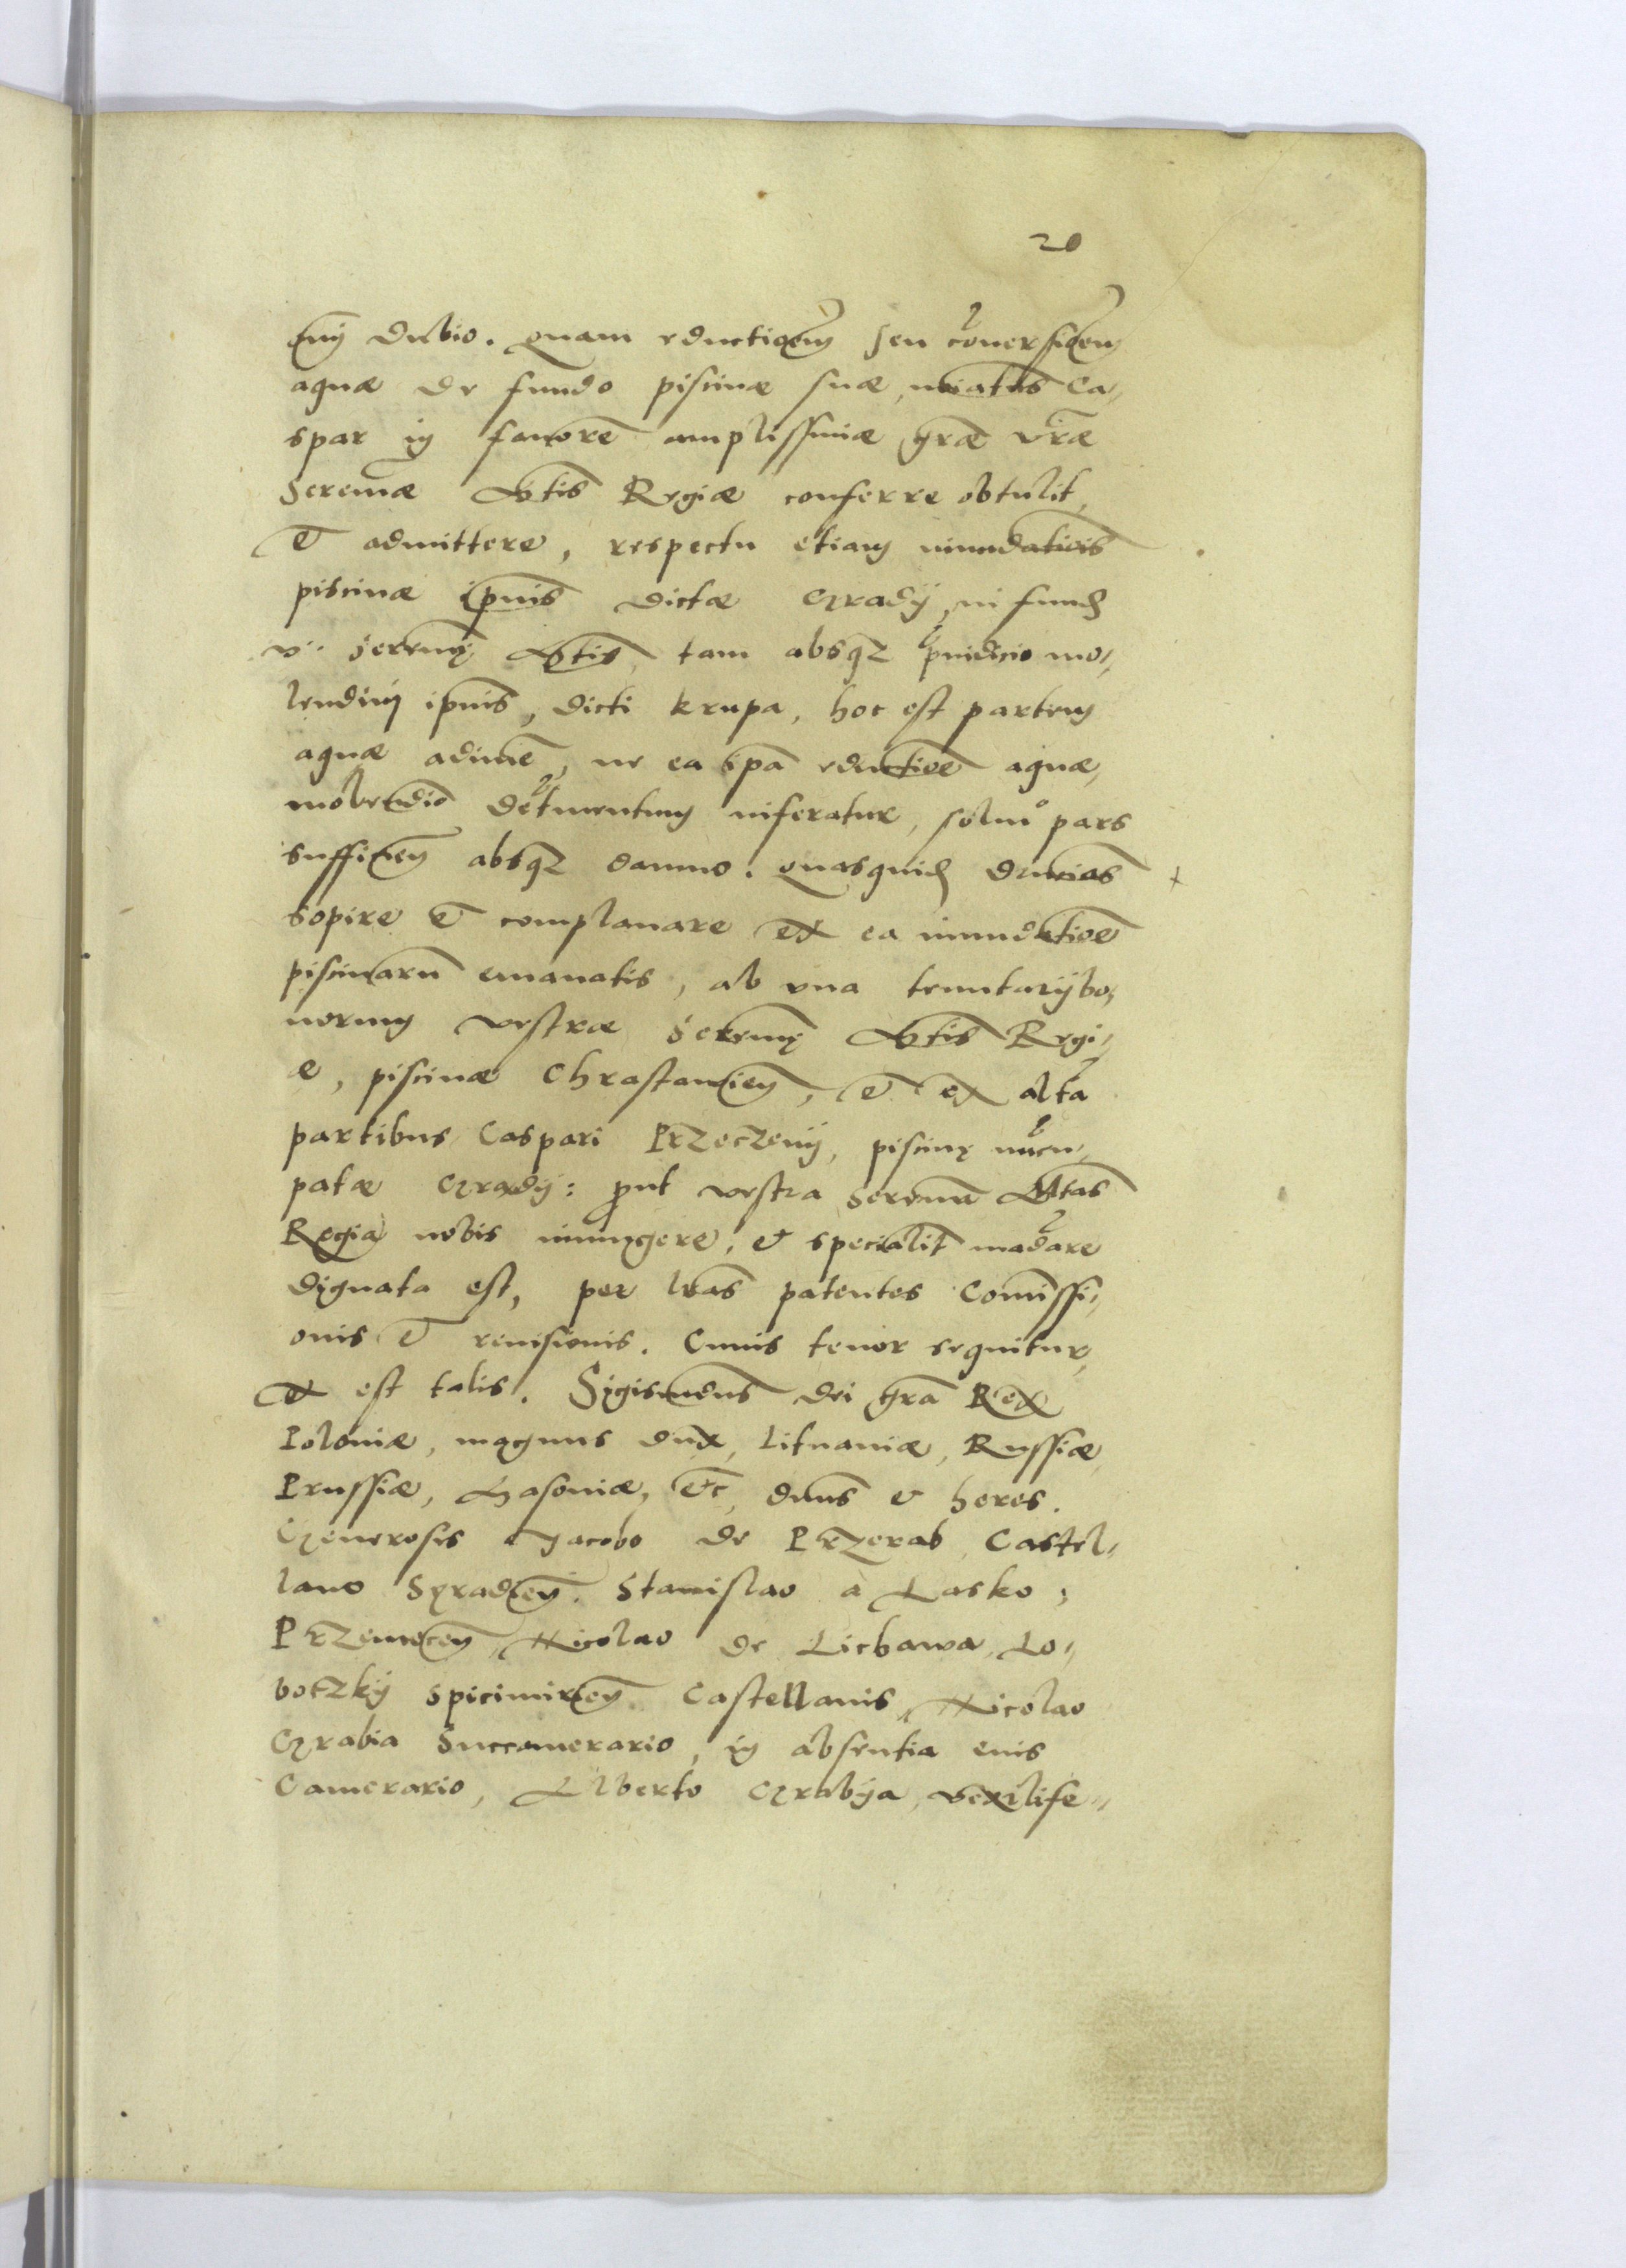 20
omni dubio. quam eductionem seu conversionem
aquæ de fundo piscinæ suæ, Ca-
spar in favorē amplissimæ grāe vrāe
Serenmæ Mtis Regiæ conferre obtulit,
et admittere, respectu etiam inundationis
piscinæ ipius dictæ Grady, in fund
v. Serenmę Mtis, tam absqz pniudicio mo-
lendini ipius, dicti krupa, hoc est partem
aquæ, ne ea ipa eductioe aquæ,
molendio detrimentum inferatur, solum pars
sufficien absqz damno. quasquid
sopire et complanare ex ea inundatioe
piscinarū emanatis, ab una tenutarij bo-
norum vestræ Serenmę Mtis Regi-
æ, piscinæ Chrastawien, et ex altā
partibus Caspari Przeczenij, piscinę nūcu-
patæ Grady: put vestra Serenma Mtas
Regia nobis iniungere, et specialit mādare
dignata est, per lrās patentes Comissi-
onis et revisionis. Cuius tenor sequitur,
et est talis. Sigismdus dei grā Rex
Poloniæ, magnus dux, Lituaniæ, Russiæ,
Prussiæ, Masoviæ, etc, dnus et heres.
Generosis Jacobo de Przerab Castel-
lano Syradien. Stanislao a Lasko,
Przemecen, Nicolao de Licbawa, Lo-
botzkij Spicimirien. Castellanis, Nicolao
Grabia Succamerario, in absentia eius
Camerario, Alberto Grabya, vexilife-